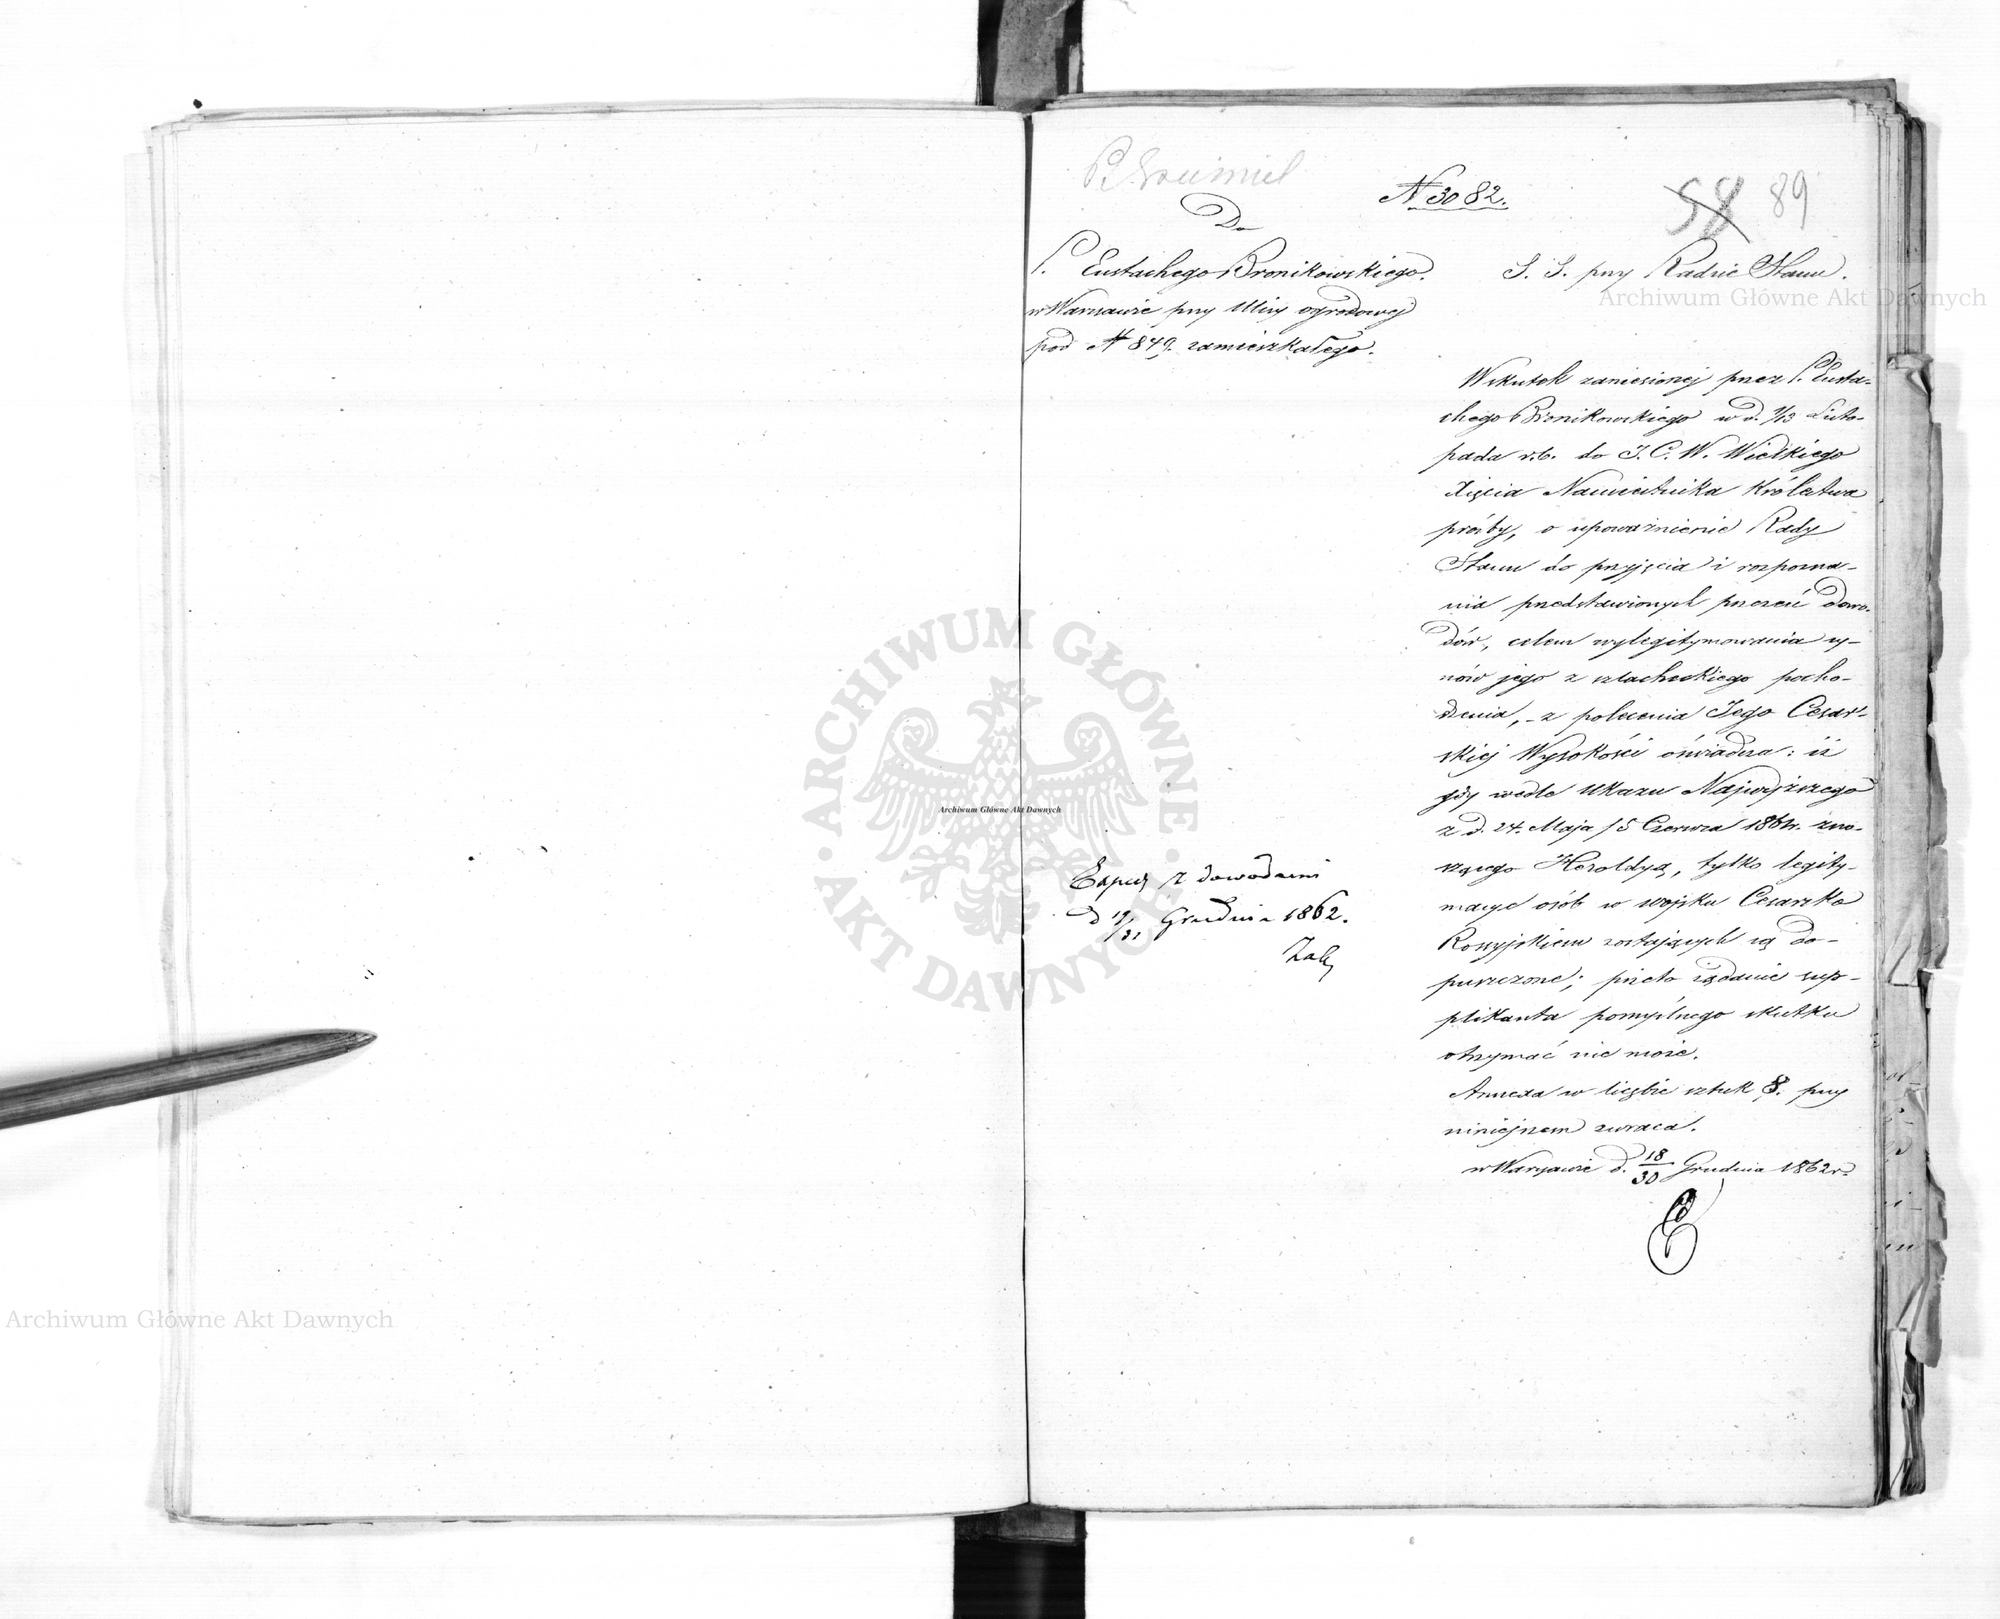 № 3082.
58 89
Do
P. Eustachego Bronikowskiego.
w Warszawie przy Ulicy ogrodowej
pod № 849. zamieszkałego.
S. S. przy Radzie Stanu.
Wskutek zaniesionej przez P. Eusta-
chego Bronikowskiego w d. 1/13 Listo-
pada r.b. do J. C. W. Wielkiego
Xięcia Namiestnika Królestwa
prośby, o upoważnienie Rady
Stanu do przyjęcia i rozpozna-
nia przedstawionych przezeń dowo-
dów, celem wylegitymowania sy-
nów jego z szlacheckiego pocho-
dzenia, - z polecenia Jego Cesar-
skiej Wysokości oświadcza: iż
gdy wedle Ukazu Najwyższego
z d. 24. Maja / 5 Czerwca 1861 r. zno-
szącego Heroldyą, tylko legity-
macye osób w wojsku Cesarsko
Rossyjskiem zostających są do-
puszczone; przeto żądanie sup-
plikanta pomyślnego skutku
otrzymać nie może.
Annexa w liczbie sztuk 8. przy
niniejszem zwraca.
w Warszawie d. 18/30 Grudnia 1862 r.
Exped z dowodami
d 19/31 Grudnia 1862.
Archiwum Główne Akt Dawnych
Archiwum Główne Akt Dawnych
Archiwum Główne Akt Dawnych
ARCHIWUM GŁÓWNE
AKT DAWNYCH